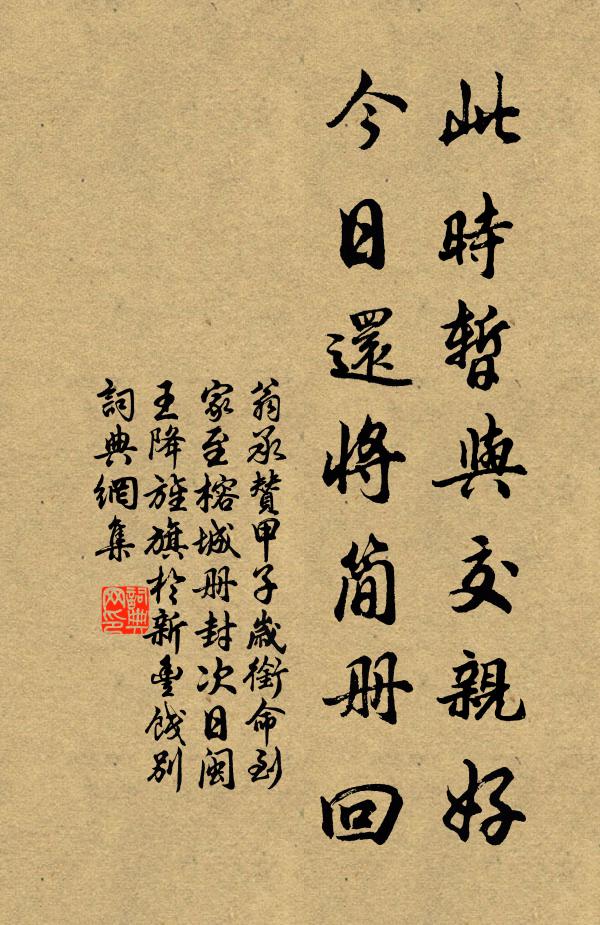 此時暫與交親好
今日還將簡册回
翁承贊甲子歲銜命到
家至榕城册封次日閩
王降旌旗於新豐餞別
詞典網集
詞典
网印